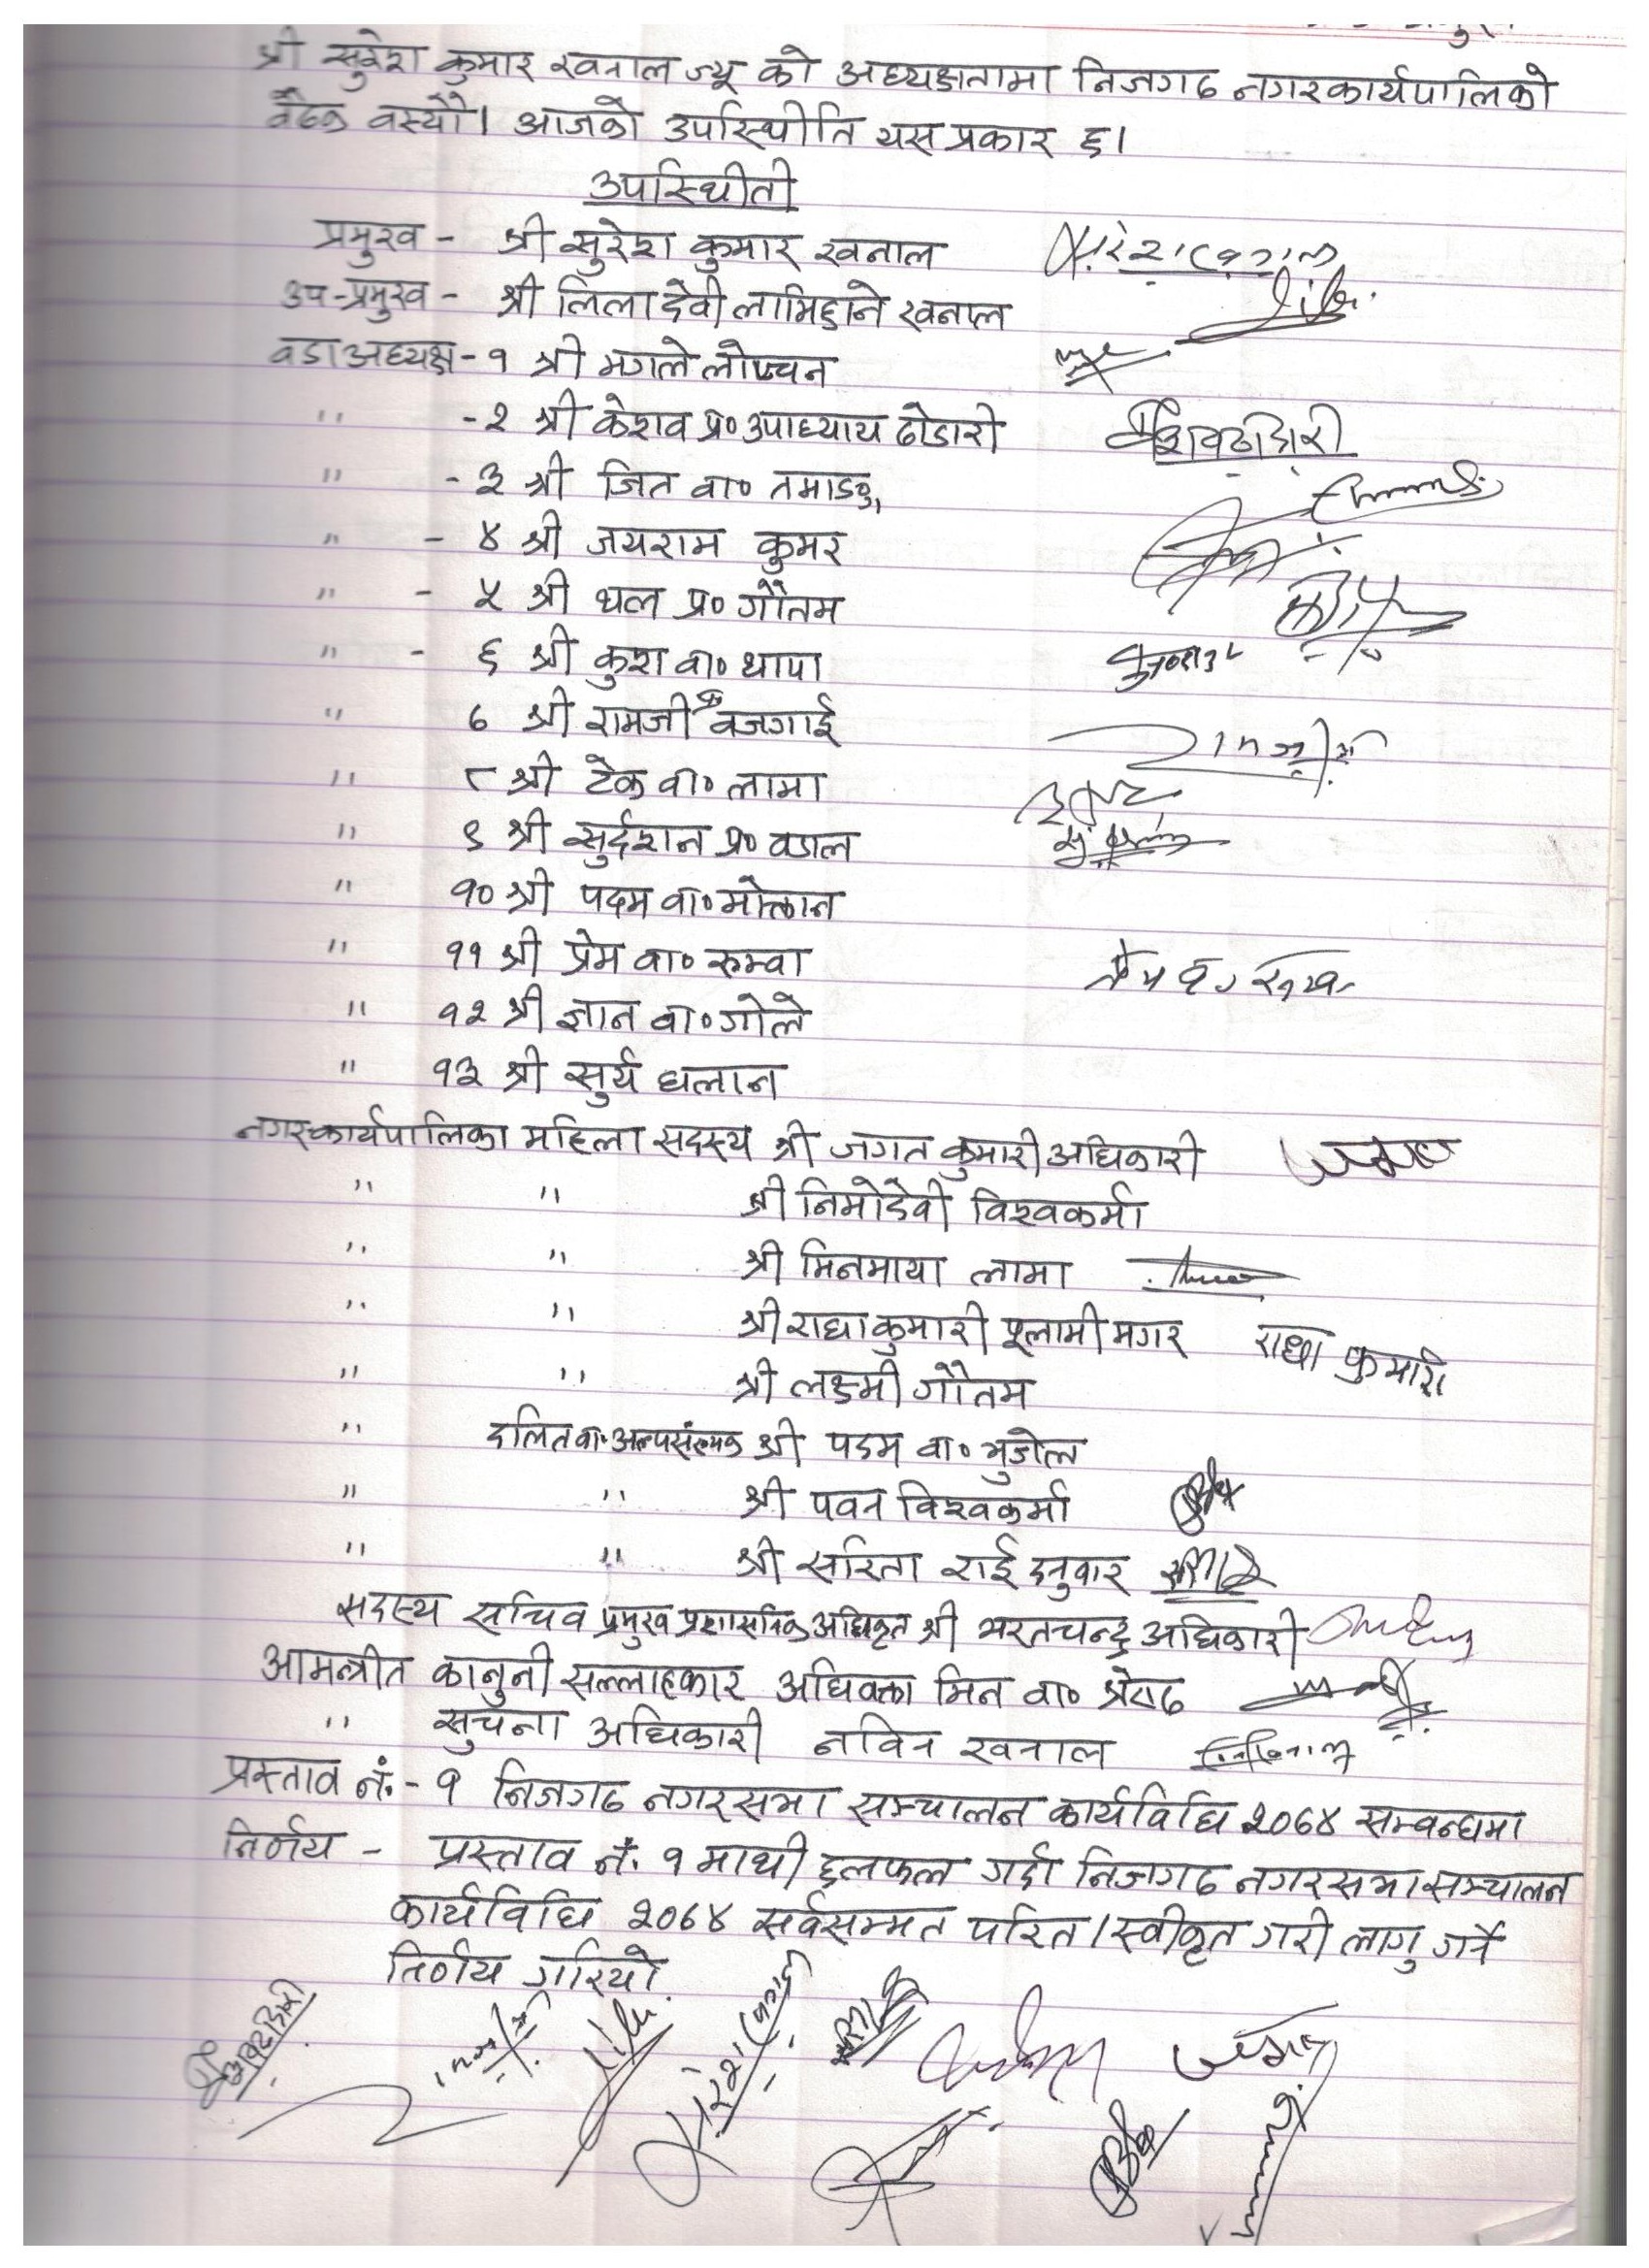 श्री सुरेश कुमार खनाल ज्यू को अध्यक्षतामा निजगढ नगरकार्यपालिको
बैठक वस्यौ। आजको उपस्थिीति यस प्रकार छ।
उपस्थिीती
प्रमुख - श्री सुरेश कुमार खनाल
उप-प्रमुख - श्री लिला देवी लामिछाने खनाल
वडा अध्यक्ष - १ श्री मगले लोप्चन
" - २ श्री केशव प्र० उपाध्याय ढोडारी केशव ढोडारी
" - ३ श्री जित वा० तमाङ
" - ४ श्री जयराम कुमर
" - ५ श्री थल प्र० गौतम
" - ६ श्री कुश वा० थापा
" ७ श्री रामजी बजगाई
" ८ श्री टेक वा० लामा
" ९ श्री सुर्दशन प्र० वडाल
" १० श्री पदम वा० मोक्तान
" ११ श्री प्रेम वा० रुम्वा
" १२ श्री ज्ञान वा० गोले
" १३ श्री सुर्य घलान
नगरकार्यपालिका महिला सदस्य श्री जगत कुमारी अधिकारी
" " श्री निमोदेवी विश्वकर्मा
" " श्री मिनमाया लामा
" " श्री राधा कुमारी पूलामी मगर राधा कुमारी
" " श्री लक्ष्मी गौतम
" दलित वा. अल्पसंख्यक श्री पदम वा० भुजेल
" " श्री पवन विश्वकर्मा
" " श्री सरिता राई दनुवार
सदस्य सचिव प्रमुख प्रशासनिक अधिकृत श्री भरतचन्द्र अधिकारी
आमन्त्रीत कानुनी सल्लाहकार अधिवक्ता मिन वा० श्रेष्ठ
" सुचना अधिकारी नविन खनाल
प्रस्ताव नं. - १ निजगढ नगरसभा सञ्चालन कार्यविधि २०७४ सम्वन्धमा
निर्णय - प्रस्ताव नं. १ माथी छलफल गर्दा निजगढ नगरसभा सञ्चालन
कार्यविधि २०७४ सर्वसम्मत पारित/स्वीकृत गरी लागु गर्ने
निर्णय गरियो.